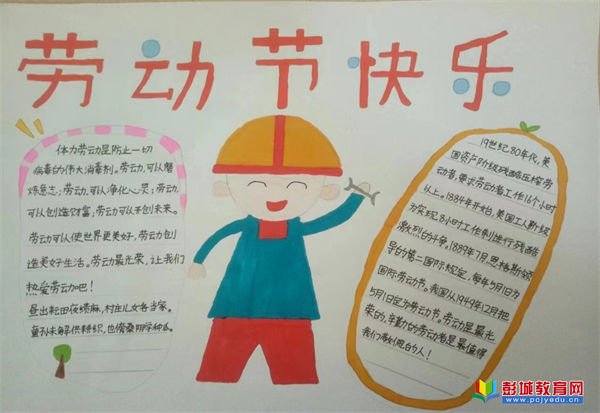 劳动节快乐
体力劳动是防止一切
病毒的伟大消毒剂。劳动,可以磨
炼意志;劳动,可以净化心灵;劳动,
可以创造财富;劳动可以开创未来。
劳动可以使世界更美好,劳动创
造美好生活。劳动最光荣,让我们
热爱劳动吧!
昼出耘田夜绩麻,村庄儿女各当家。
童孙未解供耕织,也傍桑阴学种瓜。
19世纪80年代,美
国资产阶级残酷压榨劳
动者,要求劳动者工作16个小时
以上。1884年开始,美国工人阶级
为实现8小时工作制进行残酷
激烈的斗争。1889年7月,恩格斯领
导的第二国际规定,每年5月1日为
国际劳动节。我国从1949年12月把
5月1日定为劳动节。劳动是最光
荣的,辛勤的劳动者是最值得
我们敬佩的人!
彭城教育网
www.pcjyedu.cn